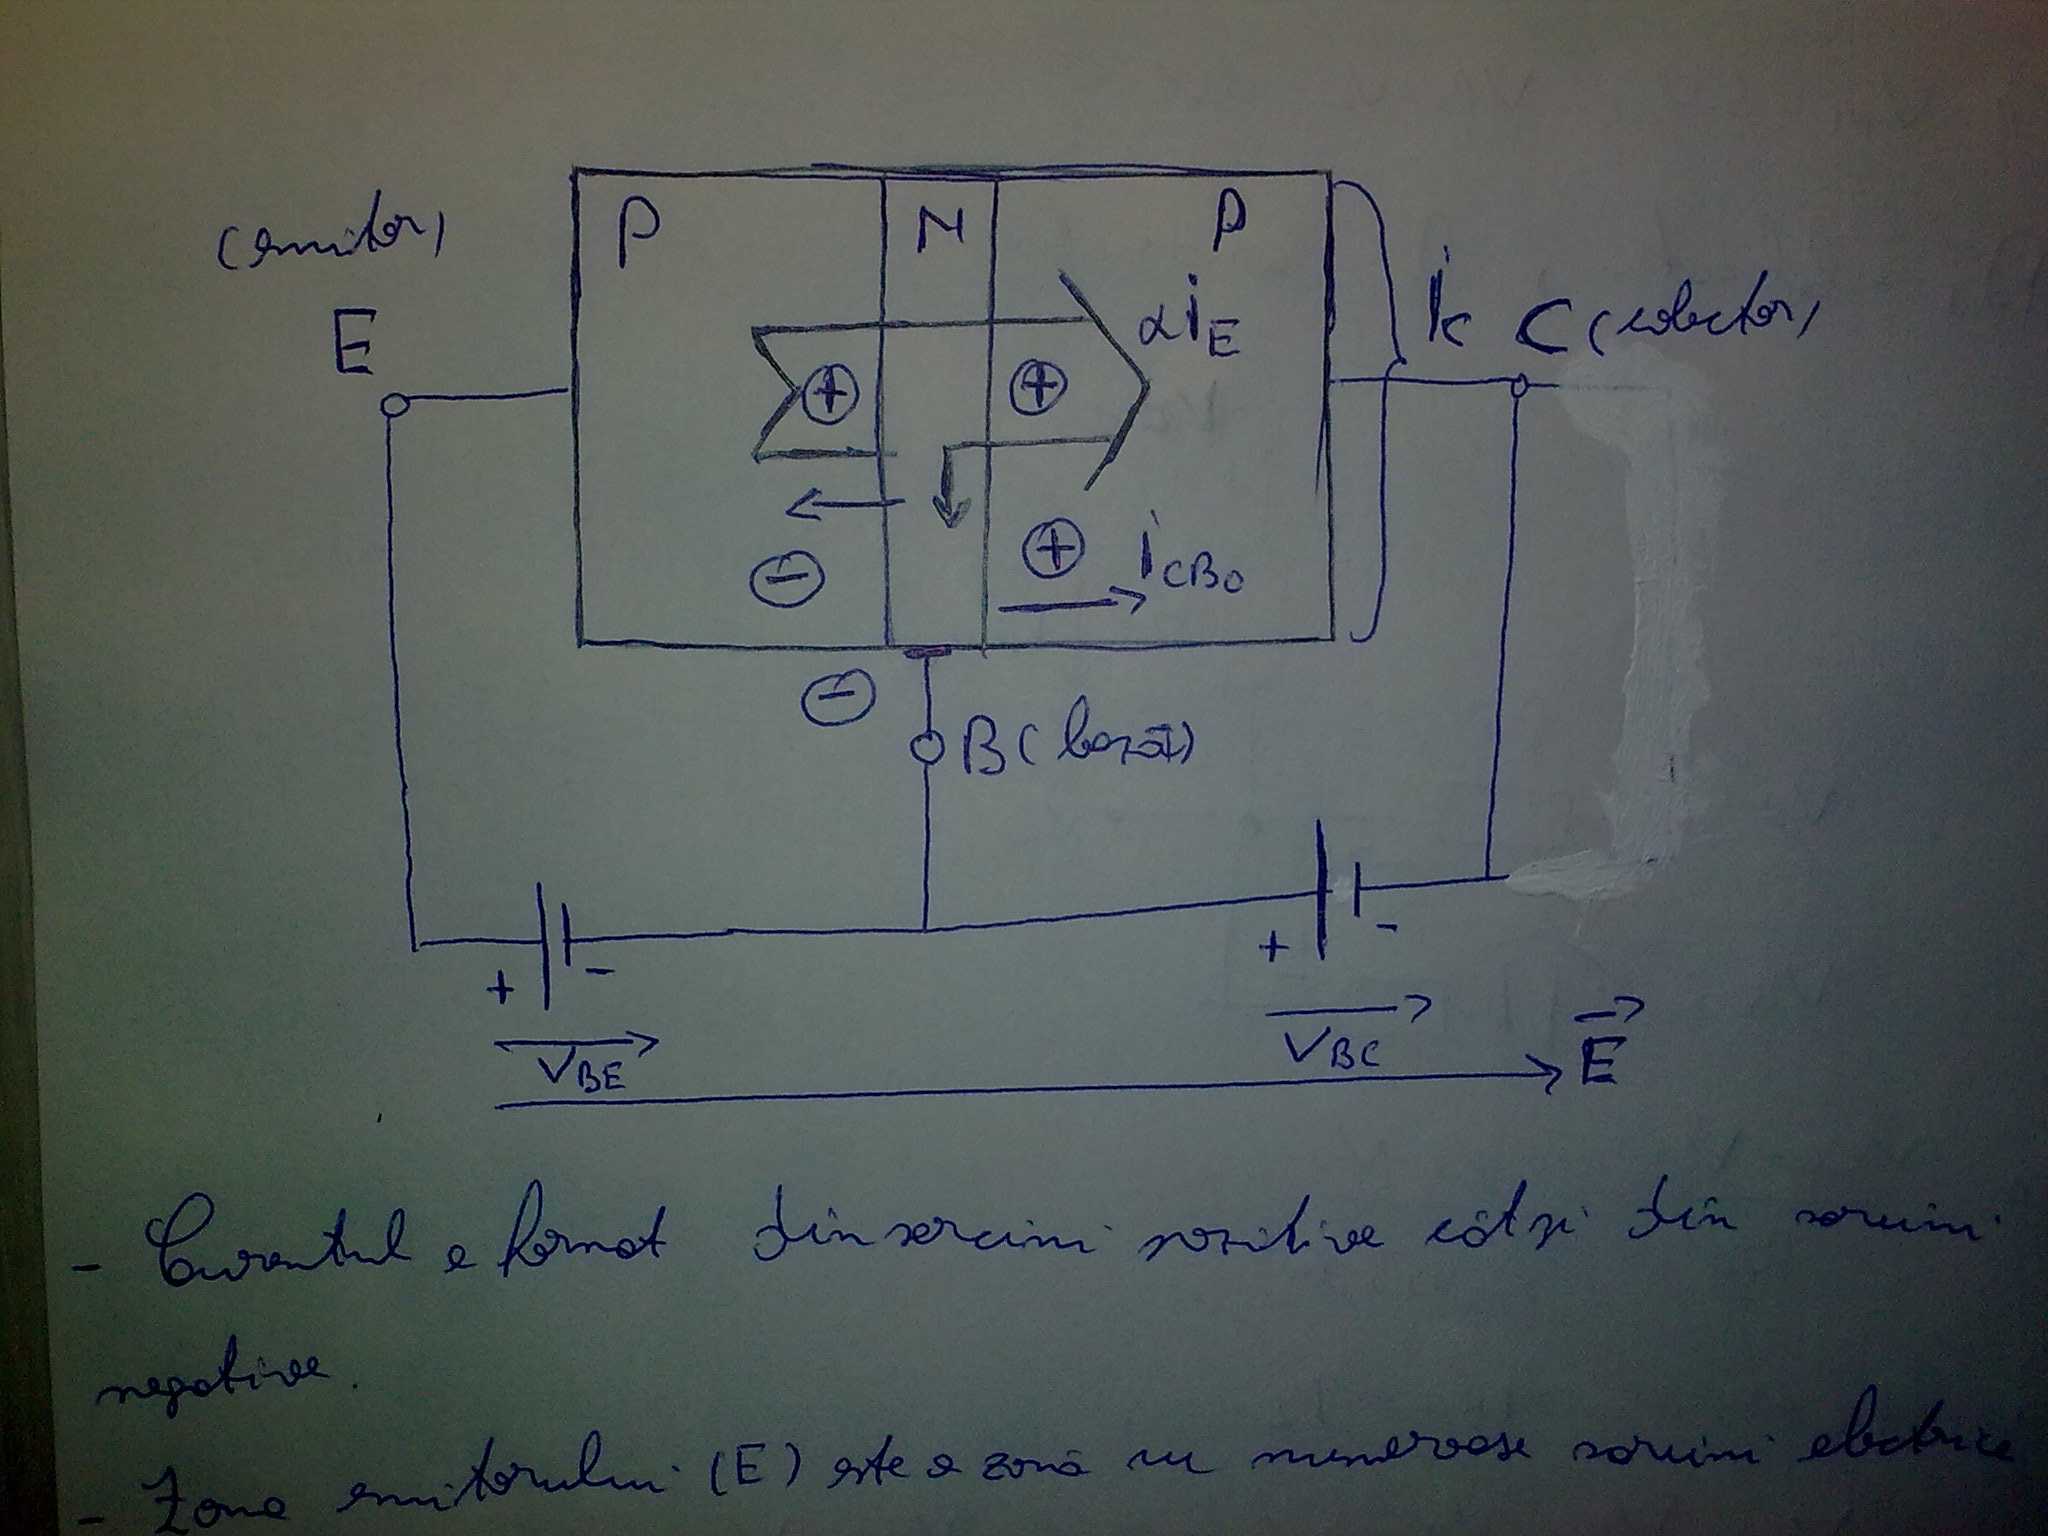 (emitor)
P
N
P
E
αiE
iC
C (colector)
+
+
+
iCB0
-
-
B (bază)
+
-
+
-
VBE
VBC
E
- Curentul e format din sarcini pozitive cât și din sarcini
negative.
- Zona emitorului (E) este o zonă cu numeroase sarcini electrice